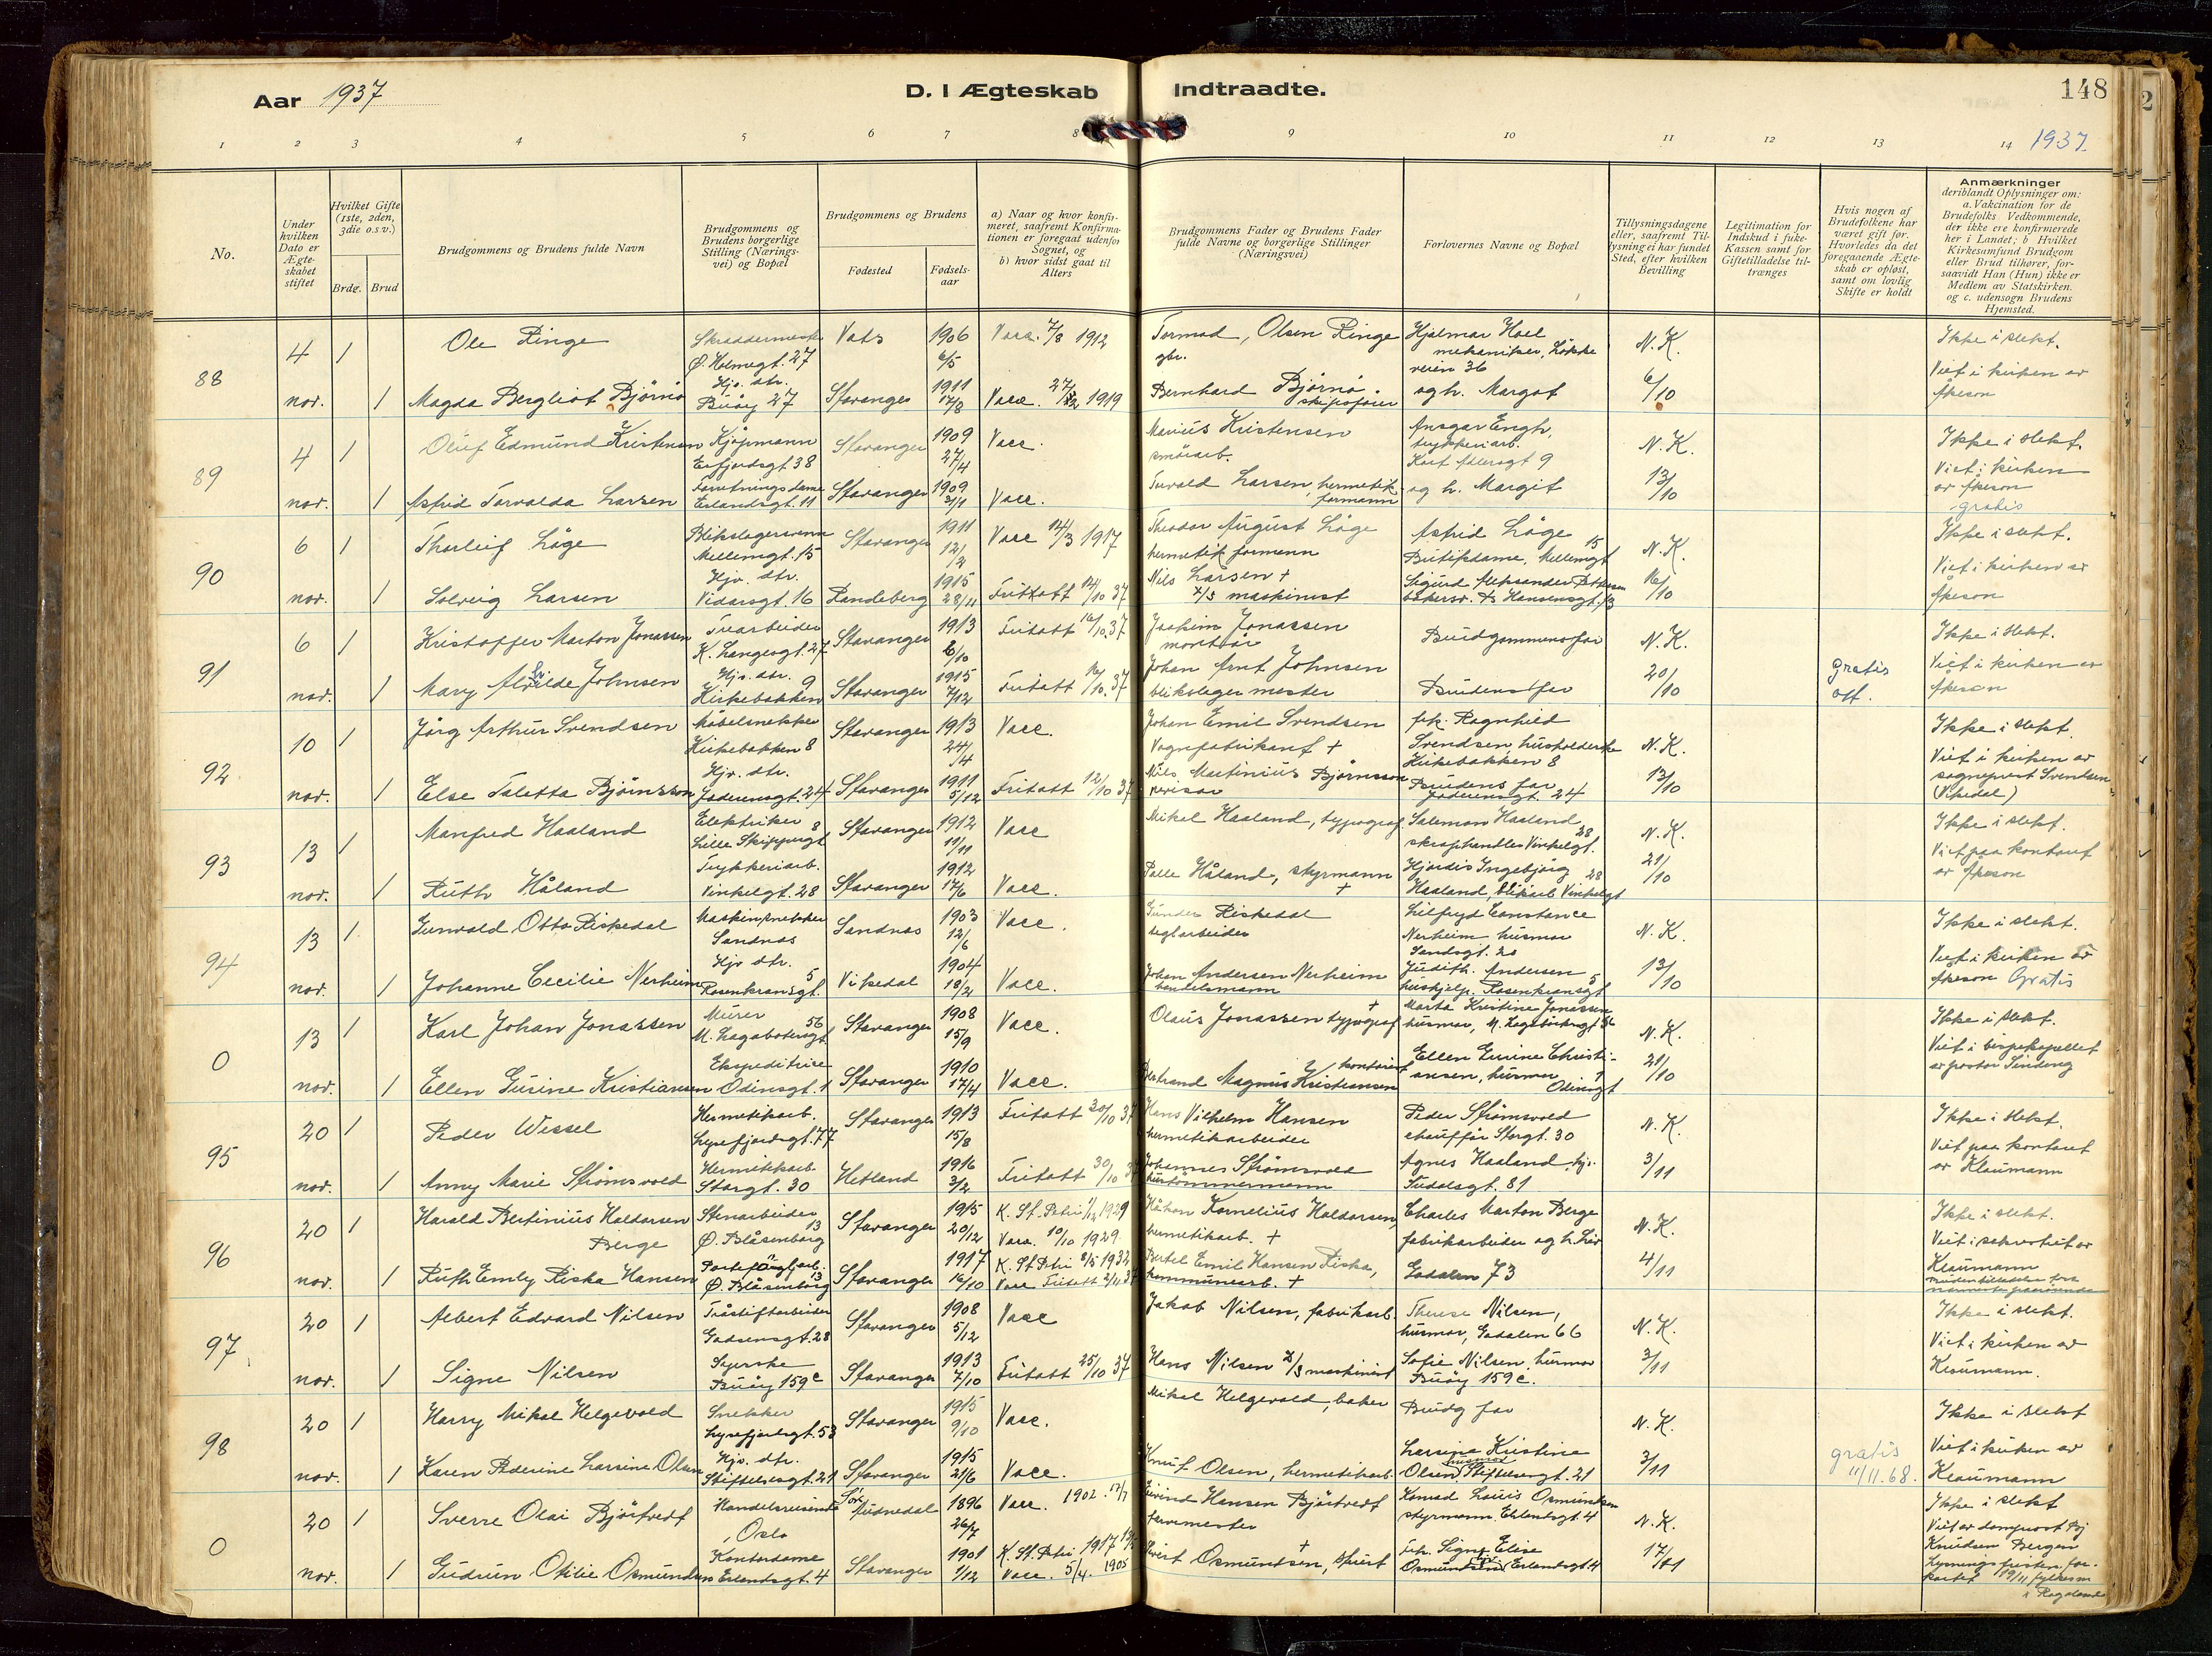 Aar 1937
D. I Ægteskab Indtraadte.
148
1 2 3 4 5 6 7 8 9 10 11 12 13 14 1937
No.
Under hvilken Dato er Ægteskabet stiftet
Hvilket Gifte (1ste, 2den, 3die o.s.v.)
Brdg. Brud
Brudgommens og Brudens fulde Navn
Brudgommens og Brudens borgerlige Stilling (Næringsvei) og Bopæl
Brudgommens og Brudens
Fødested
Fødselsaar
a) Naar og hvor konfirmeret, saafremt Konfirmationen er foregaat udenfor Sognet, og b) hvor sidst gaat til Alters
Brudgommens Fader og Brudens Fader fulde Navne og borgerlige Stillinger (Næringsvei)
Forlovernes Navne og Bopæl
Tillysningsdagene eller, saafremt Tillysning ei har fundet Sted, efter hvilken Bevilling
Legitimation for Indskud i fuke-Kassen samt for Giftetilladelse tiltrænges
Hvis nogen af Brudefolkene har været gift før. Hvorledes da det foregaaende Ægteskab er opløst, samt om lovlig Skifte er holdt
Anmærkninger
deriblandt Oplysninger om: a. Vakcination for de Brudefolks Vedkommende, der ikke ere konfirmerede her i Landet; b Hvilket Kirkesamfund Brudgom eller Brud tilhører, forsaavidt Han (Hun) ikke er Medlem av Statskirken. og c. udensogn Brudens Hjemsted.
88 4 nov. 1 Ole Ringe Skræddermester Ø. Holmegt. 27 Vats 1906 6/5 Vacc. 7/8 1912 Tormod Olsen Ringe gbr. Hjalmar Hoel mekaniker, Løkkeveien 36 N.K. Ikke i slekt.
1 Magda Bergliot Bjørnø Hjv. dtr. Buøy 27 Stavanger 1911 17/8 Vacc. 1919 Bernhard Bjørnø skipsfører og h. Margot 6/10 Viet i kirken av Åkeson
89 4 nov. 1 Oluf Edmund Kristensen Kjøpmann Erfjordsgt. 38 Stavanger 1909 27/4 Vacc. Marius Kristensen Ansgar Engh, trykkeriarb. N.K. Ikke i slekt.
1 Astrid Torvalda Larsen Forretningsdame Erlandsgt. 11 Stavanger 1909 31/1 Vacc. Torvald Larsen, hermetikformann og h. Margit 13/10 Viet i kirken av Åkeson gratis
90 6 nov. 1 Thorleif Låge Blikslagersvenn Mellemgt. 15 Stavanger 1911 12/2 Vacc 14/3 1917 Theodor August Låge hermetikformann Astrid Låge Butikdame, Mellemgt 15 N.K. Ikke i slekt.
1 Solveig Larsen Hjv. dtr. Vidarsgt. 16 Randeberg 1915 28/11 Fritatt 14/10 37 Nils Larsen + maskinist Sigurd Aleksander Pettersen 16/10 Viet i kirken av Åkeson
91 6 nov. 1 Kristoffer Marton Jonassen Trearbeider K. Langesgt. 27 Stavanger 1913 6/10 Fritatt 16/10.37 Joakim Jonassen montør Brudgommens far N.K. Ikke i slekt.
1 Mary Alvilde Johnsen Hjv. dtr. Kirkebakken 9 Stavanger 1915 7/12 Fritatt 16/10.37 Johan Arnt Johnsen blikslagermester Brudens far 20/10 gratis att. Viet i kirken av Åkeson
92 10 nov. 1 Jørg Arthur Svendsen Møbelsnekker Kirkebakken 8 Stavanger 1913 24/4 Vacc. Johan Emil Svendsen Vognfabrikant + frk. Ragnhild Svendsen, husholderske Kirkebakken 8 N.K. Ikke i slekt.
1 Else Taletta Bjørnsson Hjv. dtr. Jaderensgt. 24 Stavanger 1911 5/12 Fritatt 12/10 37 Nils Martinius Bjørnsson revisor Brudens far Jaderensgt. 24 13/10 Viet i kirken av sogneprest Svendsen (Vikedal)
93 13 nov. 1 Manfred Haaland Elektriker Lille Skippergt 8 Stavanger 1912 11/11 Vacc Mikal Haaland, typograf Salomon Haaland skraphandler Vinkelgt. 28 N.K. Ikke i slekt.
1 Ruth Håland Trykkeriarb. Vinkelgt. 28 Stavanger 1912 17/6 Vacc. Palle Håland, styrmann + Hjørdis Ingebjørg Haaland, blikarb. Vinkelgt 28 21/10 Viet paa kontoret av Åkeson
94 13 nov. 1 Gunvald Otto Riskedal Maskinsnekker Sandnes Sandnes 1903 12/6 Vacc. Gunder Riskedal teglarbeider Lilfryd Constance Nerheim husmor Sandsgt. 20 N.K. Ikke i slekt.
1 Johanne Cecilie Nerheim Hjv dtr. Rosenkransgt. 5 Vikedal 1904 18/2 Vacc. Johan Andersen Nerheim handelsmann Judith Andersen hushjelp. Rosenkransgt 5 13/10 Viet i kirken av Åkeson Gratis
0 13 nov. 1 Karl Johan Jonassen Murer M. Lagabøtersgt 56 Stavanger 1908 15/9 Vacc. Olaus Jonassen typograf + Marta Kristine Jonassen husmor, M. Lagabøtersgt 56 N.K. Ikke i slekt.
1 Ellen Gurine Kristiansen Ekspeditrise Odinsgt. 1 Stavanger 1910 17/4 Vacc. Bertrand Magnus Kristiansen kontorist Ellen Gurine Christiansen, husmor Odinsgt 1 21/10 Viet i bispekapellet av pastor Sinding
95 20 nov. 1 Peder Wessel Hermetikarb. Lysefjordsgt. 77 Stavanger 1913 15/8 Fritatt 30/10 37 Hans Vilhelm Hansen hermetikarbeider Peder Strømsvold chauffør Storgt. 30 N.K. Ikke i slekt.
1 Anny Marie Strømsvold Hermetikkarb. Storgt. 30 Hetland 1916 3/2 Fritatt 30/10 37 Johannes Strømsvold hustømmermann Agnes Haaland, hjv. Suldalsgt. 81 3/11 Viet paa kontoret av Klaumann
96 20 nov. 1 Harald Bertinius Haldorsen Berge Stenarbeider Ø. Blåsenborg 13 Stavanger 1915 20/12 K. St. Petri 1929 Vacc. 10/10 1929 Håkon Kornelius Haldorsen, hermetikarb. + Charles Marton Berge fabrikarbeider og h. N.K. Ikke i slekt.
1 Ruth Emly Riska Hansen Ø. Blåsenborg 13 Stavanger 1917 16/10 K. St Petri 8/5 1932 Vacc Fritatt 2/11 37 Bertel Emil Hansen Riska, kommunearb. + Godalen 73 4/11 Viet i sakristiet av Klaumann
97 20 nov. 1 Albert Edvard Nilsen Tråstiftarbeider Godsensgt. 28 Stavanger 1908 5/12 Vacc Jakob Nilsen, fabrikarb. Therese Nilsen, husmor, Godalen 66 N.K. Ikke i slekt.
1 Signe Nilsen Syerske Buøy 159c Stavanger 1913 7/10 Fritatt 25/10 37 Hans Nilsen maskinist Sofie Nilsen, husmor Buøy 159c. 3/11 Viet i kirken av Klaumann.
98 20 nov. 1 Harry Mikal Helgevold Snekker Lysefjordsgt. 53 Stavanger 1915 9/10 Vacc. Mikal Helgevold, baker Brudg far N.K. Ikke i slekt
1 Karen Pederine Larsine Olsen Hjv. dtr. Stiftelsesgt. 21 Stavanger 1915 21/6 Vacc. Knut Olsen, hermetikarb. Larsine Kristine Olsen husmor Stiftelsesgt. 21 3/11 gratis 11/11.68. Viet i kirken av Klaumann
0 20 nov. 1 Sverre Olai Bjørtvedt Handelsreisende, Oslo 1896 26/7 Vacc. 1902 Eivind Hansen Bjørtvedt farvemester Konrad Louis Osmundsen styrmann. Erlandsgt. 4 N.K. Ikke i slekt
1 Gudrun Otilie Osmundsen Kontordame Erlandsgt. 4 Stavanger 1901 1/12 K. St. Petri 1917 Vacc. 5/4. 1905 Osmundsen + Frk. Signe Elise Osmundsen Erlandsgt 4 17/11 Viet av domprost Knudsen Bergen Lysningsfristen forkortet 19/11 fylkesm. i Rogaland